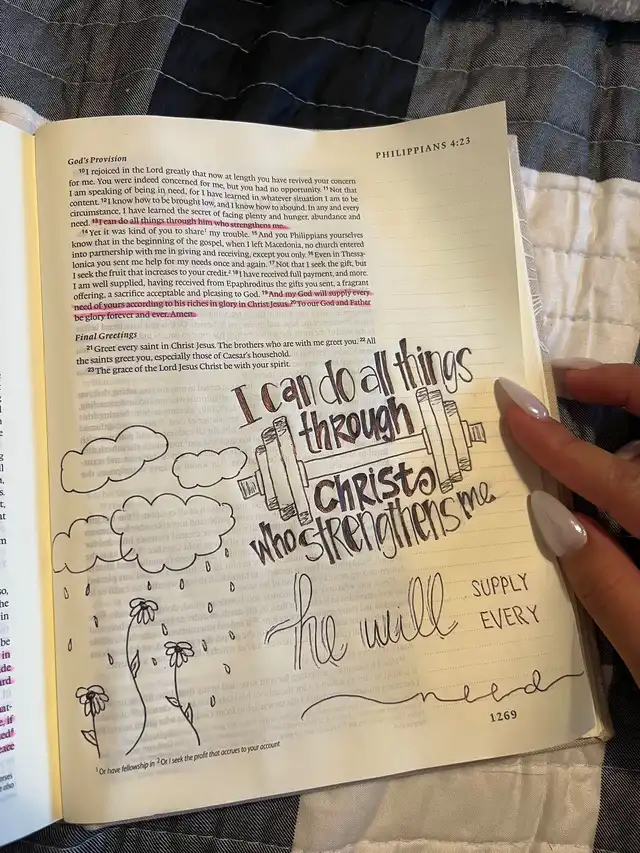 God's Provision
PHILIPPIANS 4:23
10 I rejoiced in the Lord greatly that now at length you have revived your concern
for me. You were indeed concerned for me, but you had no opportunity. 11 Not that
I am speaking of being in need, for I have learned in whatever situation I am to be
content. 12 I know how to be brought low, and I know how to abound. In any and every
circumstance, I have learned the secret of facing plenty and hunger, abundance and
need. 13 I can do all things through him who strengthens me.
14 Yet it was kind of you to share1 my trouble. 15 And you Philippians yourselves
know that in the beginning of the gospel, when I left Macedonia, no church entered
into partnership with me in giving and receiving, except you only. 16 Even in Thessa-
lonica you sent me help for my needs once and again. 17 Not that I seek the gift, but
I seek the fruit that increases to your credit.2 18 I have received full payment, and more.
I am well supplied, having received from Epaphroditus the gifts you sent, a fragrant
offering, a sacrifice acceptable and pleasing to God. 19 And my God will supply every
need of yours according to his riches in glory in Christ Jesus. 20 To our God and Father
be glory forever and ever. Amen.
Final Greetings
21 Greet every saint in Christ Jesus. The brothers who are with me greet you. 22 All
the saints greet you, especially those of Caesar's household.
23 The grace of the Lord Jesus Christ be with your spirit.
I can do all things
through
CHRIST
who strengthens me
he will SUPPLY
EVERY
need
1269
1 Or have fellowship in 2 Or I seek the profit that accrues to your account